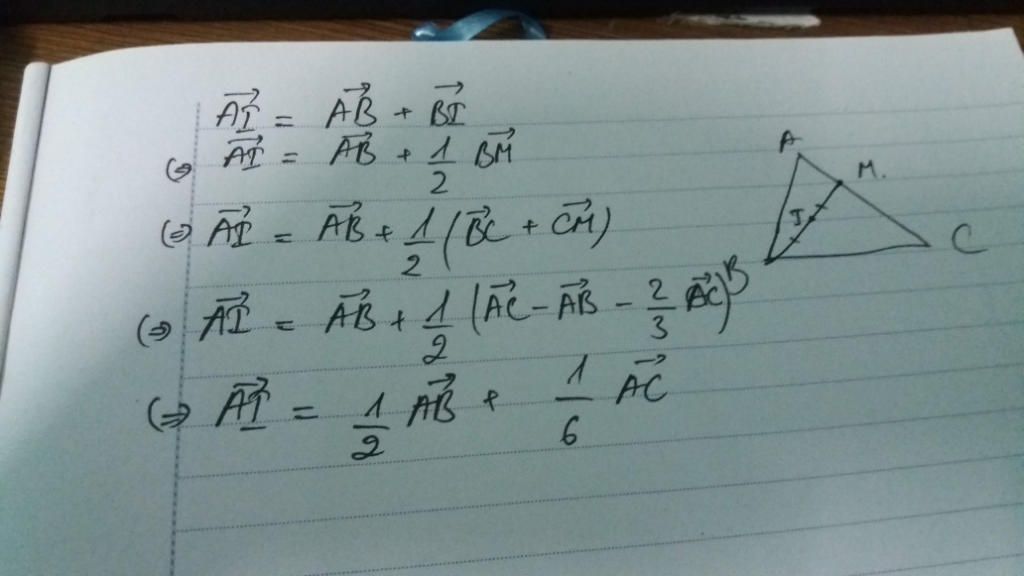 AI→ = AB→ + BI→
(⇒) AI→ = AB→ + 1/2 BM→
(⇒) AI→ = AB→ + 1/2 (BC→ + CM→)
(⇒) AI→ = AB→ + 1/2 (AC→ - AB→ - 2/3 AC→)
(⇒) AI→ = 1/2 AB→ + 1/6 AC→
A
M.
I
C
B